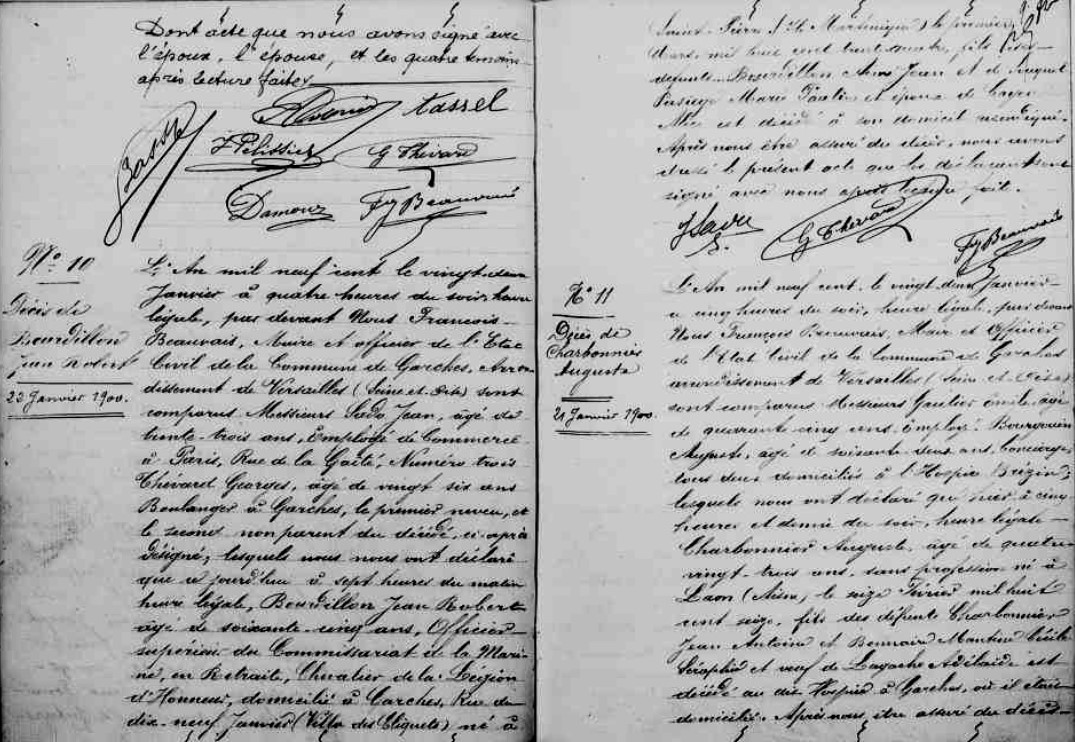 Dont acte que nous avons signé avec
l'époux, l'épouse, et les quatre témoins
après lecture faite
Tassel
J Pelissier G Chevard
Damour Fs Beauvais
N° 10
Décès de
Bourdillon
Jean Robert
22 Janvier 1900.
L'An mil neuf cent le vingt-deux
Janvier à quatre heures du soir, heure
légale, par devant Nous François
Beauvais, Maire et officier de l'Etat
Civil de la Commune de Garches, Arron
dissement de Versailles (Seine et Oise) sont
comparus Messieurs Jean, âgé de
trente-trois ans, Employé de Commerce
à Paris, Rue de la Gaîté, Numéro trois
Chevard Georges, âgé de vingt six ans
Boulanger à Garches, le premier neveu, et
le second non parent du décédé, ci-après
désigné; lesquels nous nous ont déclaré
que ce jourd'hui à sept heures du matin
heure légale, Bourdillon Jean Robert
âgé de soixante-cinq ans, Officier
supérieur du Commissariat de la Mari-
ne, en Retraite, Chevalier de la Légion
d'Honneur, domicilié à Garches, Rue du
dix-neuf Janvier (Villa des ) né à
Saint-Pierre (la Martinique) le premier
Mars, mil huit cent trente, fils des
défunts Bourdillon Jean et de
Marie et époux de
est décédé à son domicile
Après nous être assuré du décès, nous avons
dressé le présent acte que les déclarants ont
signé avec nous après lecture faite.
G Chevard
Fs Beauvais
N° 11
Décès de
Charbonnier
Auguste
21 Janvier 1900.
L'An mil neuf cent, le vingt deux Janvier
à cinq heures du soir, heure légale, par devant
Nous François Beauvais, Maire et Officier
de l'Etat Civil de la Commune de Garches
arrondissement de Versailles (Seine et Oise)
sont comparus Messieurs Gautier Emile, âgé
de quarante cinq ans, Employé, Bourgouin
Auguste, âgé de soixante deux ans, Concierge,
tous deux domiciliés à l'Hospice Brézin;
lesquels nous ont déclaré que hier à cinq
heures et demie du soir, heure légale
Charbonnier Auguste, âgé de quatre-
vingt-trois ans, sans profession né à
Laon (Aisne), le seize Février mil huit
cent seize, fils des défunts Charbonnier
Jean Antoine et
et veuf de Lagache Adélaïde est
décédé au dit Hospice à Garches, où il était
domicilié. Après nous être assuré du décès